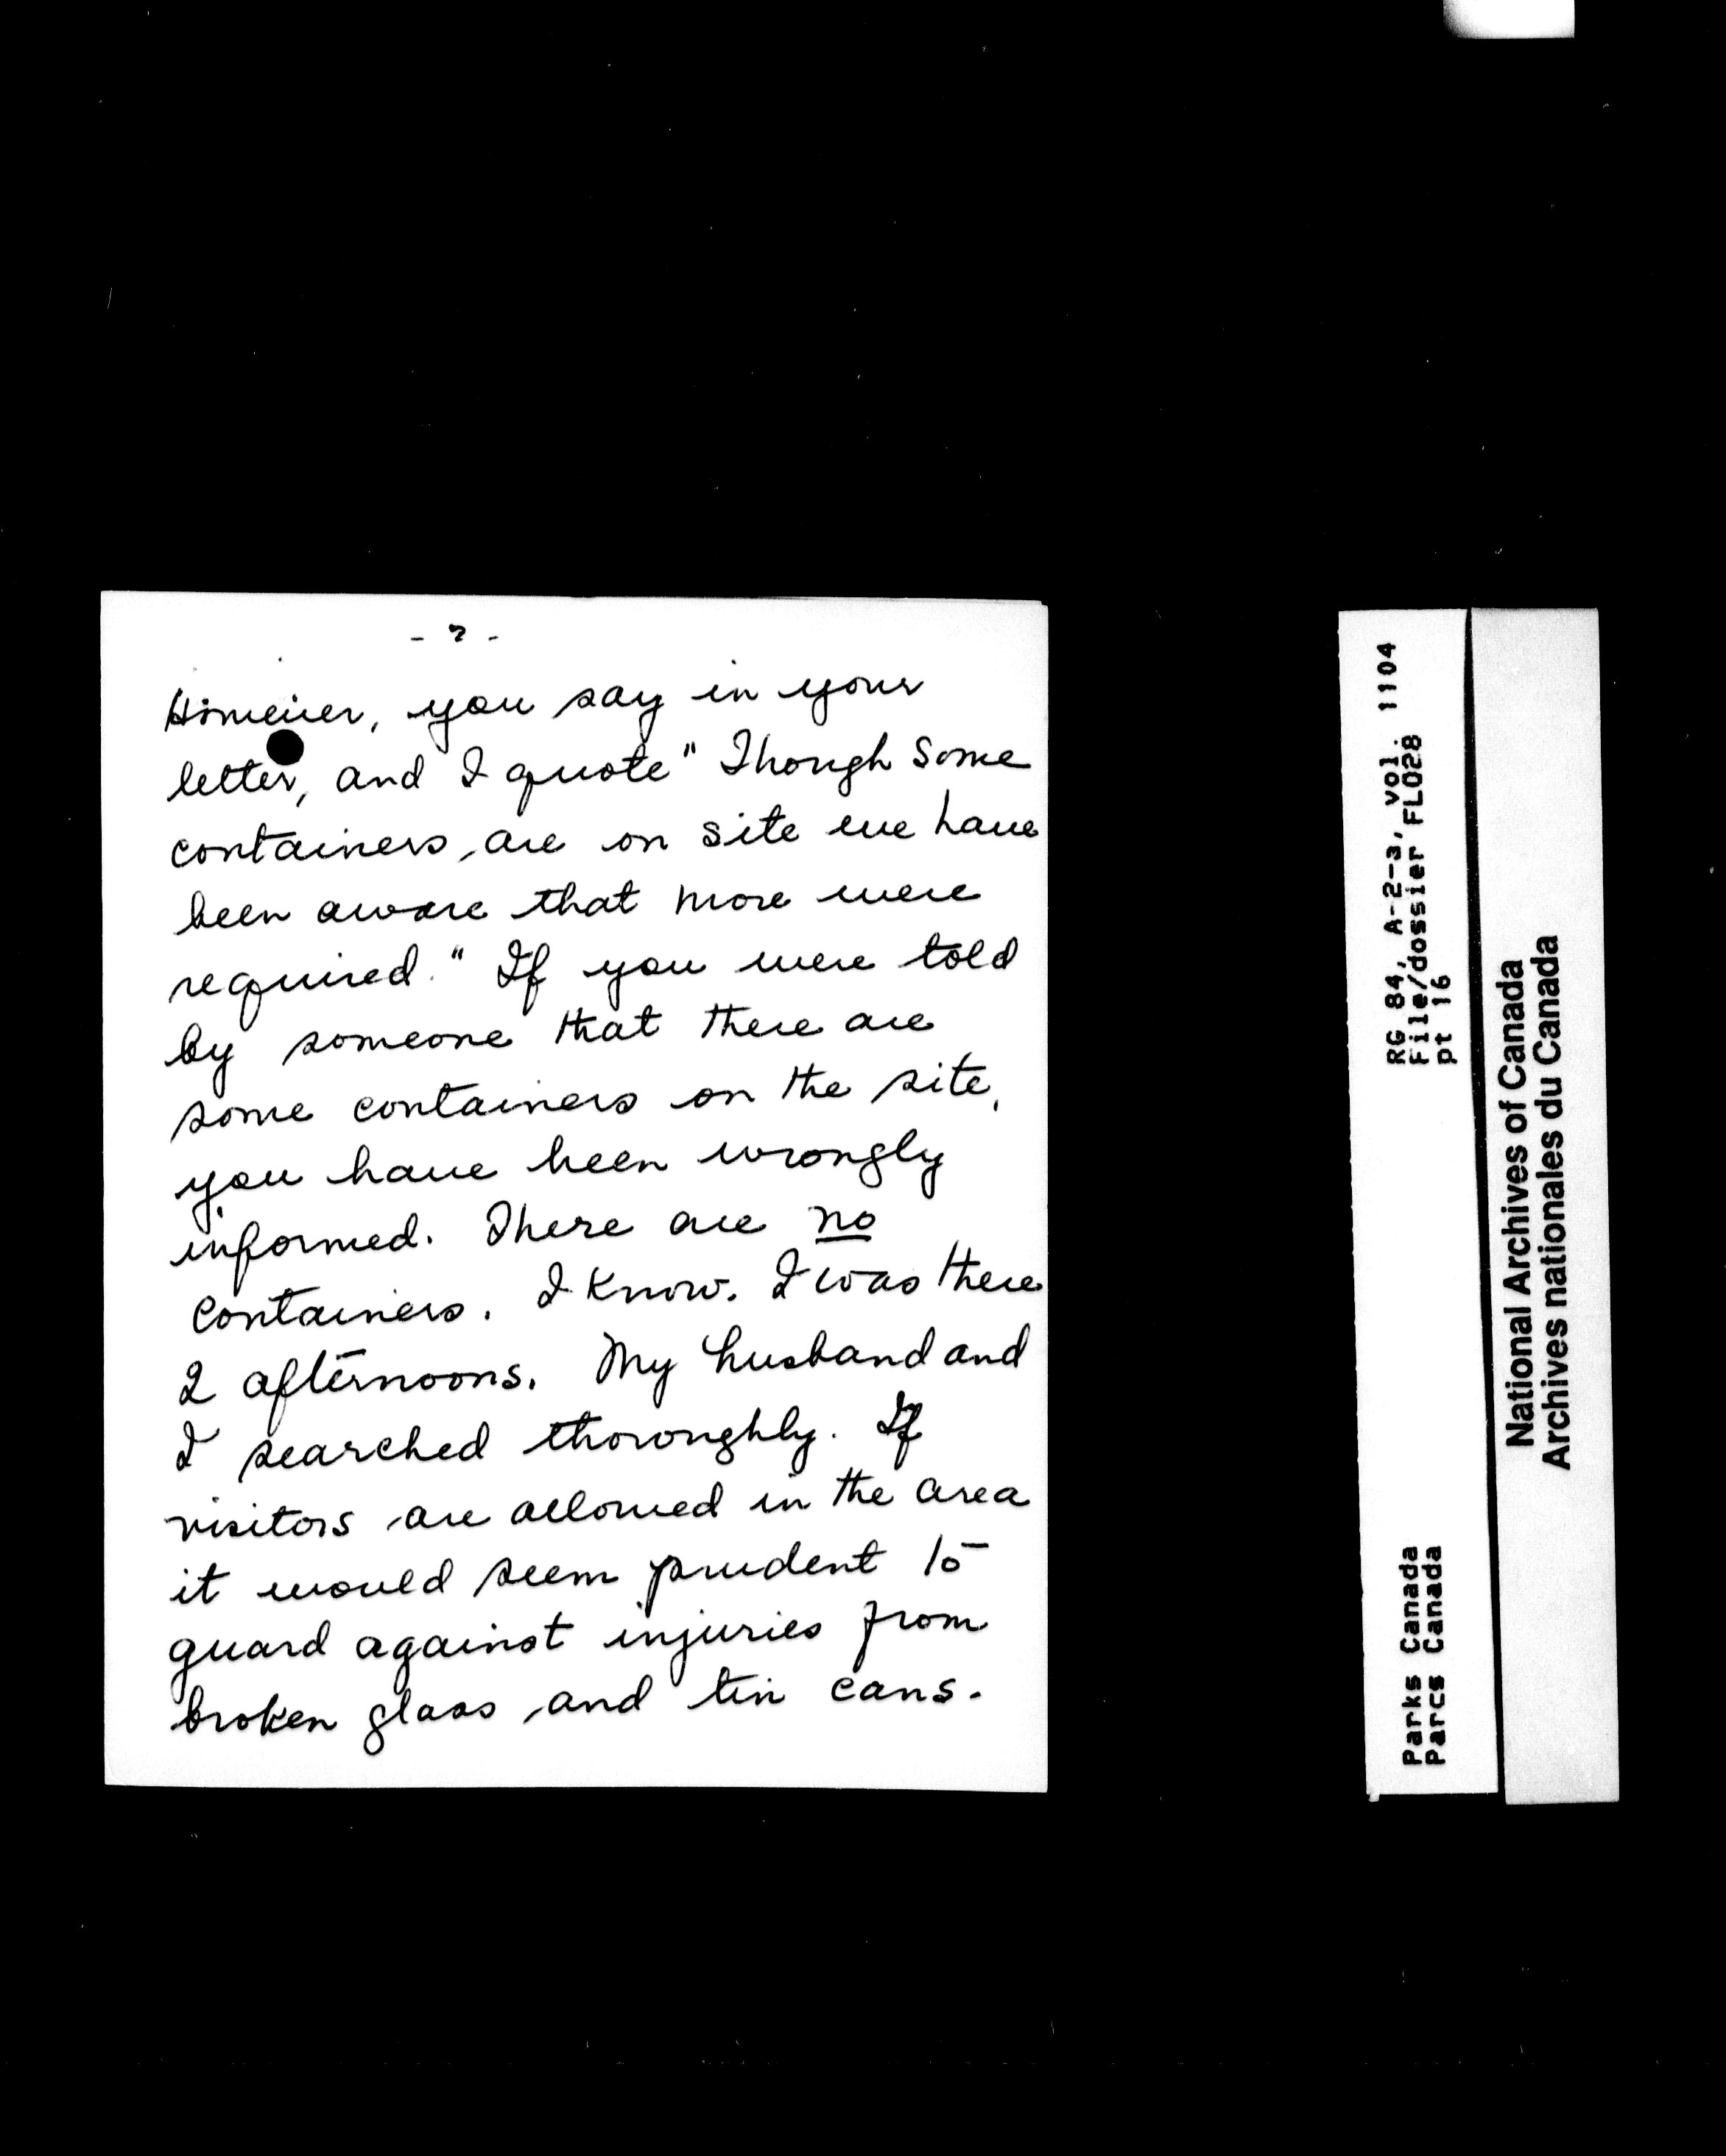 - 2 -
However, you say in your
letter, and I quote "Though some
containers are on site we have
been aware that more were
required." If you were told
by someone that there are
some containers on the site,
you have been wrongly
informed. There are no
containers. I know. I was there
2 afternoons. My husband and
I searched thoroughly. If
visitors are allowed in the area
it would seem prudent to
guard against injuries from
broken glass and tin cans.
RG 84, A-2-a, vol. 1104
File/dossier FLO28
pt 16
Parks Canada
Parcs Canada
National Archives of Canada
Archives nationales du Canada